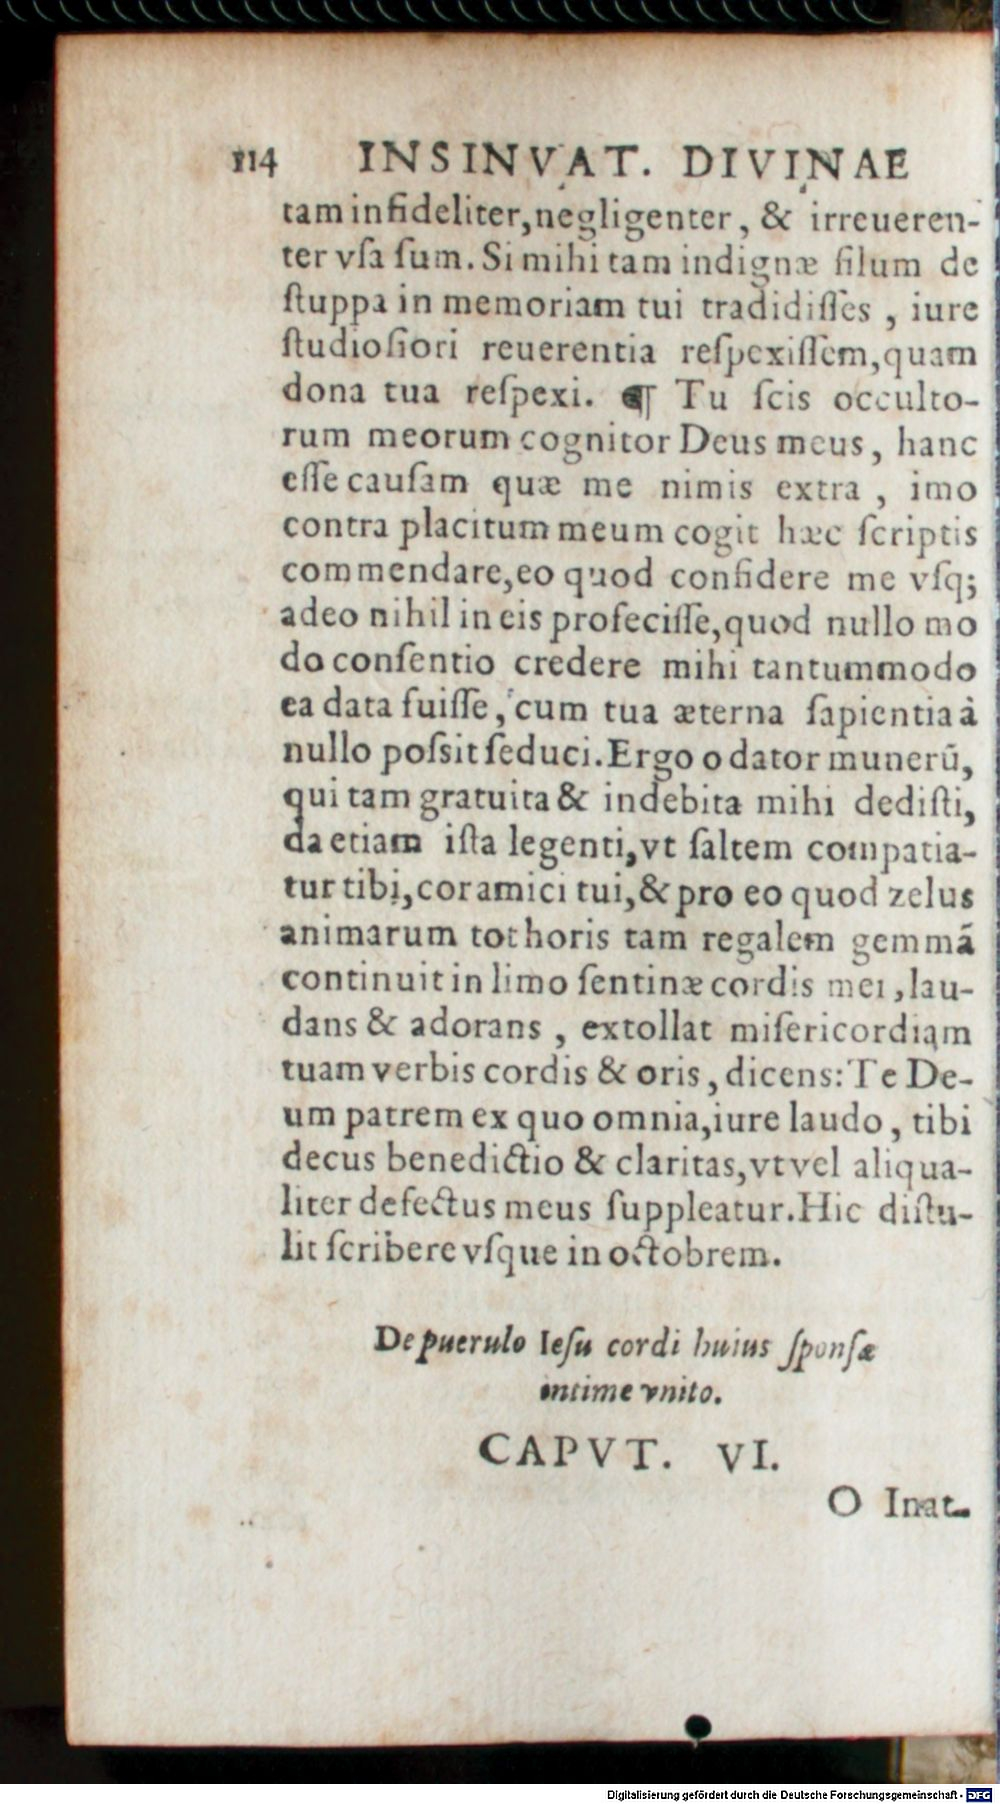 114 INSINVAT. DIVINAE
tam infideliter, negligenter, & irreueren-
ter vſa ſum. Si mihi tam indignæ filum de
ſtuppa in memoriam tui tradidiſſes, iure
ſtudioſiori reuerentia reſpexiſſem, quam
dona tua reſpexi. ¶ Tu ſcis occulto-
rum meorum cognitor Deus meus, hanc
eſſe cauſam quæ me nimis extra, imo
contra placitum meum cogit hæc ſcriptis
commendare, eo quod confidere me vſq;
adeo nihil in eis profeciſſe, quod nullo mo
do conſentio credere mihi tantummodo
ea data fuiſſe, cum tua æterna ſapientia à
nullo poſsit ſeduci. Ergo o dator munerū,
qui tam gratuita & indebita mihi dediſti,
da etiam iſta legenti, vt ſaltem compatia-
tur tibi, cor amici tui, & pro eo quod zelus
animarum tot horis tam regalem gemmā
continuit in limo ſentinæ cordis mei, lau-
dans & adorans, extollat miſericordiam
tuam verbis cordis & oris, dicens: Te De-
um patrem ex quo omnia, iure laudo, tibi
decus benedictio & claritas, vt vel aliqua-
liter defectus meus ſuppleatur. Hic diſtu-
lit ſcribere vſque in octobrem.
De puerulo Ieſu cordi huius ſponſæ
intime vnito.
CAPVT. VI.
O Inat-
Digitalisierung gefördert durch die Deutsche Forschungsgemeinschaft - DFG